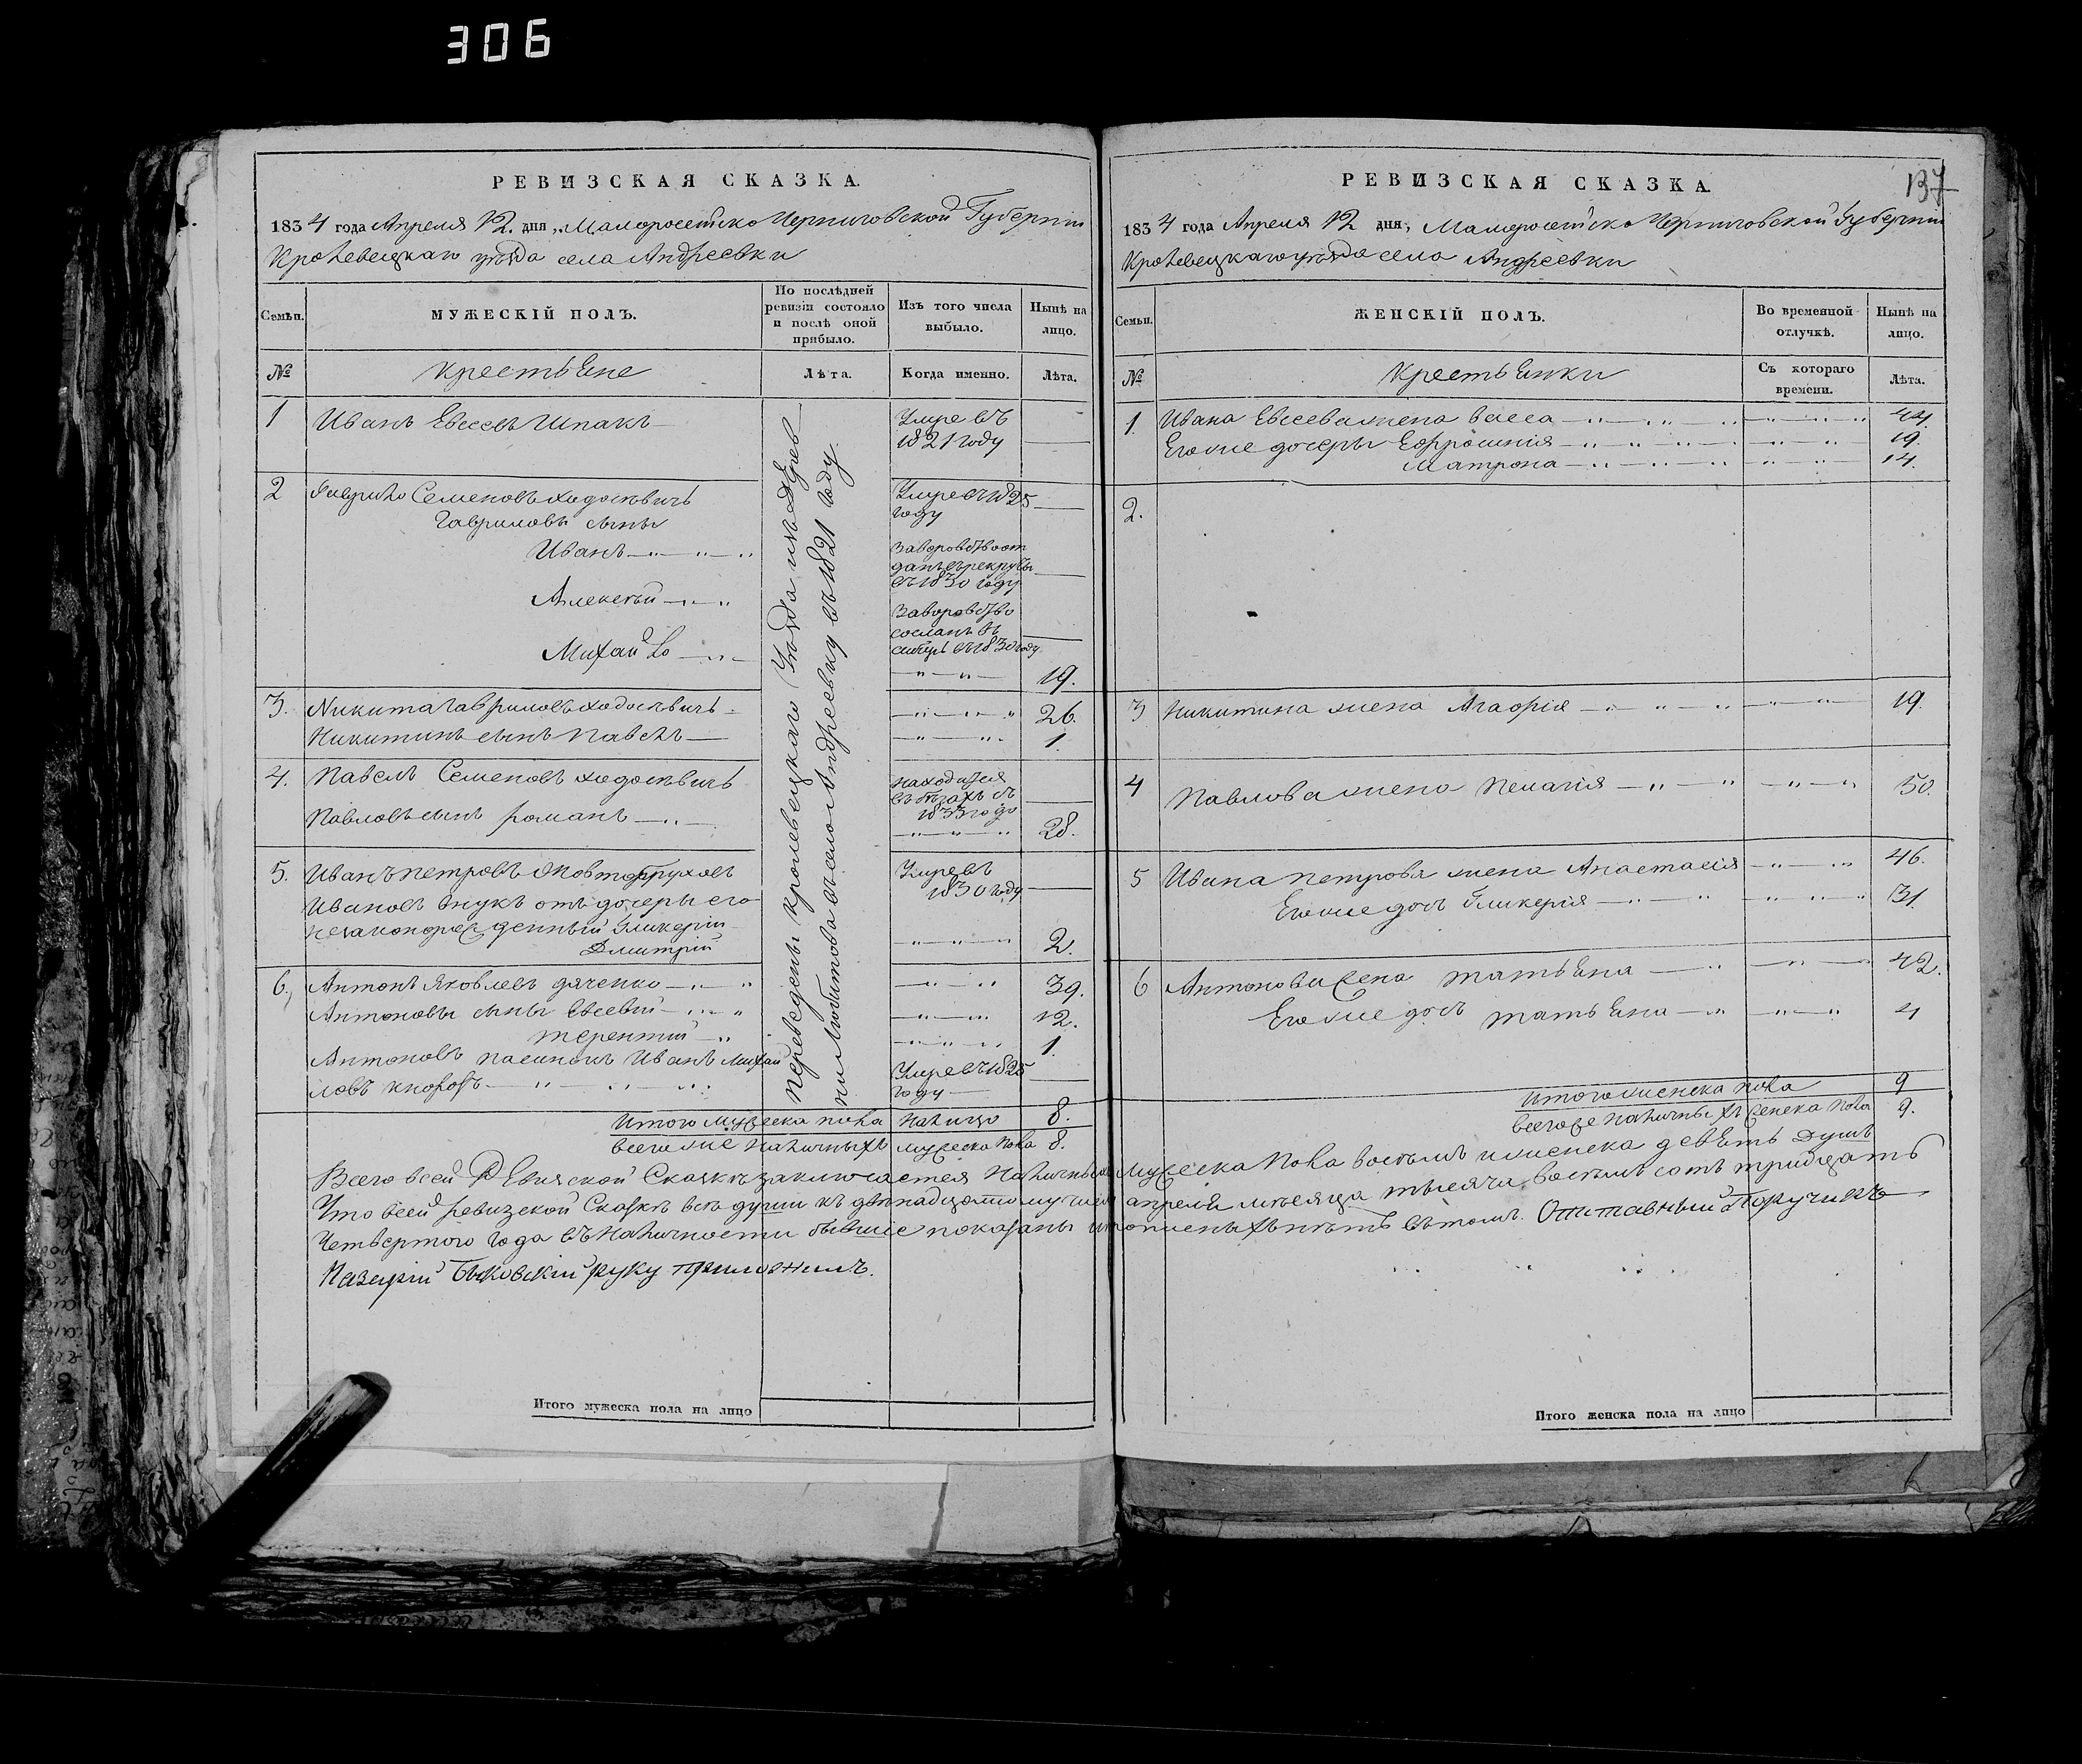 306
РЕВИЗСКАЯ СКАЗКА.
1834 года Апреля 12. дня, Малоросейско Черниговской Губернии
Кролевецкаго уѣзда села Андреевки
Семьи.
МУЖЕСКІЙ ПОЛЪ.
По послѣдней ревизіи состояло и послѣ оной прибыло.
Изъ того числа выбыло.
Нынѣ на лицо.
№
крестьяне
Лѣта.
Когда именно.
Лѣта.
переведены кролевецкаго Уѣзда изъ дерев
ни Любитова въ село Андреевку въ 1821 году.
1 Иванъ Евсеевъ Шпакъ
Умре въ
1821 году
2 Гаврило Семеновъ ходосѣвичь
Умре въ 1825
году
Гавриловы сыны
Иванъ
За воровство от
данъ въ рекруты
въ 1830 году
Алексѣй
За воровство
сосланъ въ
сибирь въ 1830 году
Михайло
19.
3. Никита Гавриловъ ходосѣвичь 26.
Никитинъ сынъ Павелъ 1.
4. Павелъ Семеновъ ходосѣвичь
находится
въ бѣгахъ съ
1833 года
Павловъ сынъ романъ 28.
5. Иванъ петровъ
Умре въ
1830 году
Ивановъ внукъ отъ дочеры его
незаконорожденный Гликеріи
Дмитрій 2.
6. Антонъ Яковлевъ дяченко 39.
Антоновы сыны Евсевій 12.
терентій 1.
Антоновъ пасинокъ Иванъ Михай
ловъ
Умре въ 1825
году
Итого мужеска пола налицо 8.
всего же наличныхъ мужеска пола 8.
РЕВИЗСКАЯ СКАЗКА.
137
1834 года Апреля 12 дня, Малоросейско Черниговской Губернии
Кролевецкаго уѣзда села Андреевки
Семьи.
ЖЕНСКІЙ ПОЛЪ.
Во временной отлучкѣ.
Нынѣ на лицо.
№
крестьянки
Съ котораго времени.
Лѣта.
1. Ивана Евсеева жена васса 44.
Его же дочеры Ефросинія 19.
Матрона 14.
2.
3 Никитина жена Агафія 19.
4 Павлова жена Пелагія 50.
5 Ивана петрова жена Анастасія 46.
Его же дочь Гликерія 31.
6 Антонова жена татьяна 42.
Его же дочь татьяна 4
Итого женска пола 9
всего же наличныхъ женска пола 9.
Всего всей Ревизской Сказкѣ заключается Наличныхъ мужеска пола восемъ и женска девять душъ
Что всей ревизской Сказкѣ всѣ души къ двѣнадцатому числу апреля мѣсяца тысяча восемъ сотъ тридцать
Четвертого года въ наличности бывшіе показаны и пропиеныхъ нѣтъ въ томъ. Отставный Поручикъ
руку приложилъ.
Итого мужеска пола на лицо
Итого женска пола на лицо